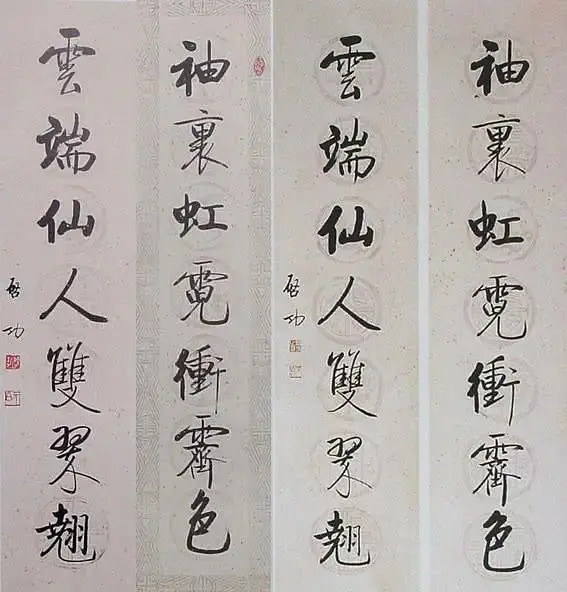 袖裏虹霓衝霽色
雲端仙人雙翠翹
啓功
袖裏虹霓衝霽色
雲端仙人雙翠翹
啓功